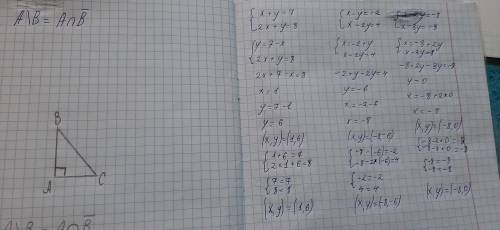 A\B = A∩B̅
B
A
C
A\B = A∩B̅
{x+y=7
2x+y=8
{y=7-x
2x+y=8
2x+7-x=8
x=1
y=7-1
y=6
(x,y)=(1,6)
{1+6=7
2×1+6=8
{7=7
8=8
(x,y)=(1,6)
{x-y=-2
x-2y=4
{x=-2+y
x-2y=4
-2+y-2y=4
y=-6
x=-2-6
x=-8
(x,y)=(-8,-6)
{-8-(-6)=-2
-8-2×(-6)=4
{-2=-2
4=4
(x,y)=(-8,-6)
x-3y=-8
{x=-8+2y
x-3y=-8
-8+2y-3y=-8
y=0
x=-8+2×0
x=-8
(x,y)=(-8,0)
{-8-2×0=-8
-8-3×0=-8
{-8=-8
-8=-8
(x,y)=(-8,0)